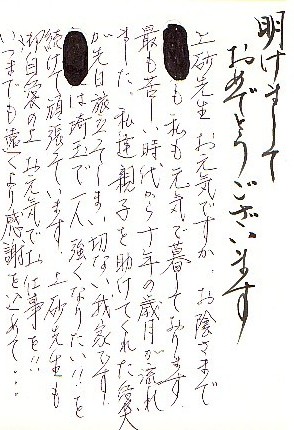 明けまして
おめでとうございます
上砂先生 お元気ですか。お陰さまで
も私も元気で暮しております。
最も苦しい時代から十年の歳月が流れ
ました。私達親子を助けてくれた愛犬
が先日旅立ちました。切ない我家です!
は埼玉で一人、強くなりたい!!と
続けて頑張っています。上砂先生も
御自愛の上お元気でお仕事を!!
いつまでも遠くより感謝を込めて・・・